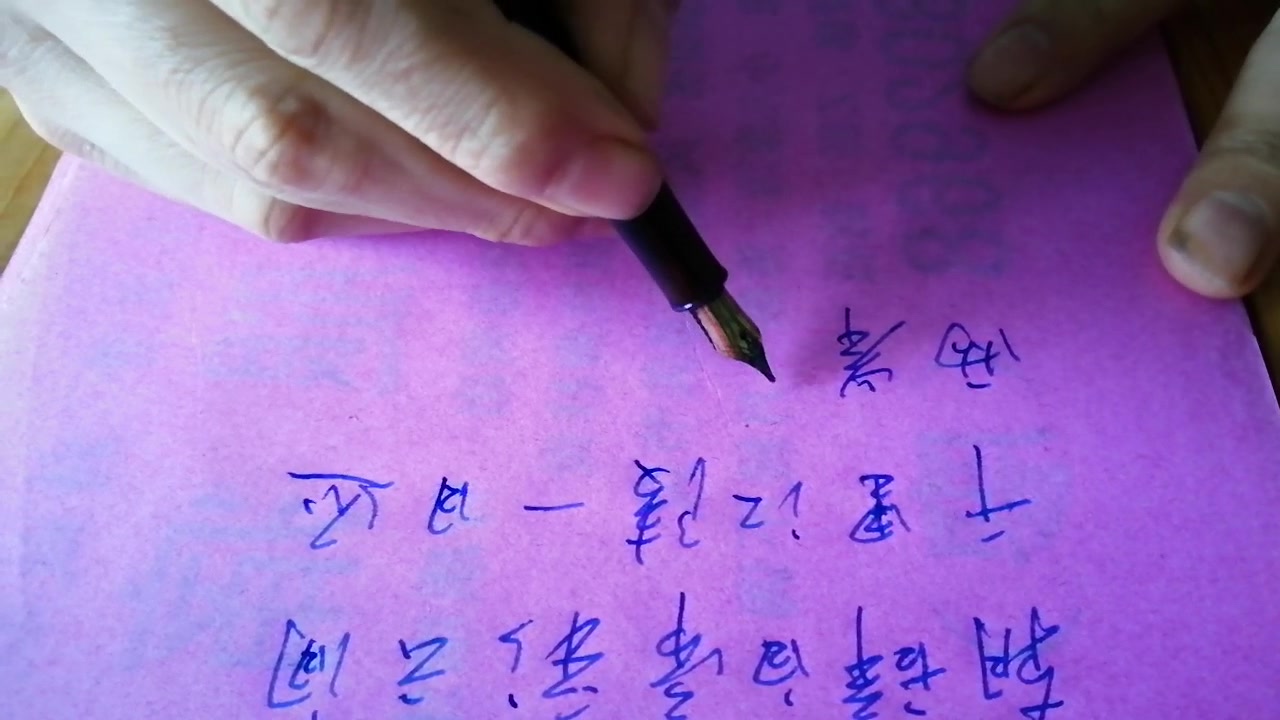 朝辞白帝彩云间
千里江陵一日还
两岸